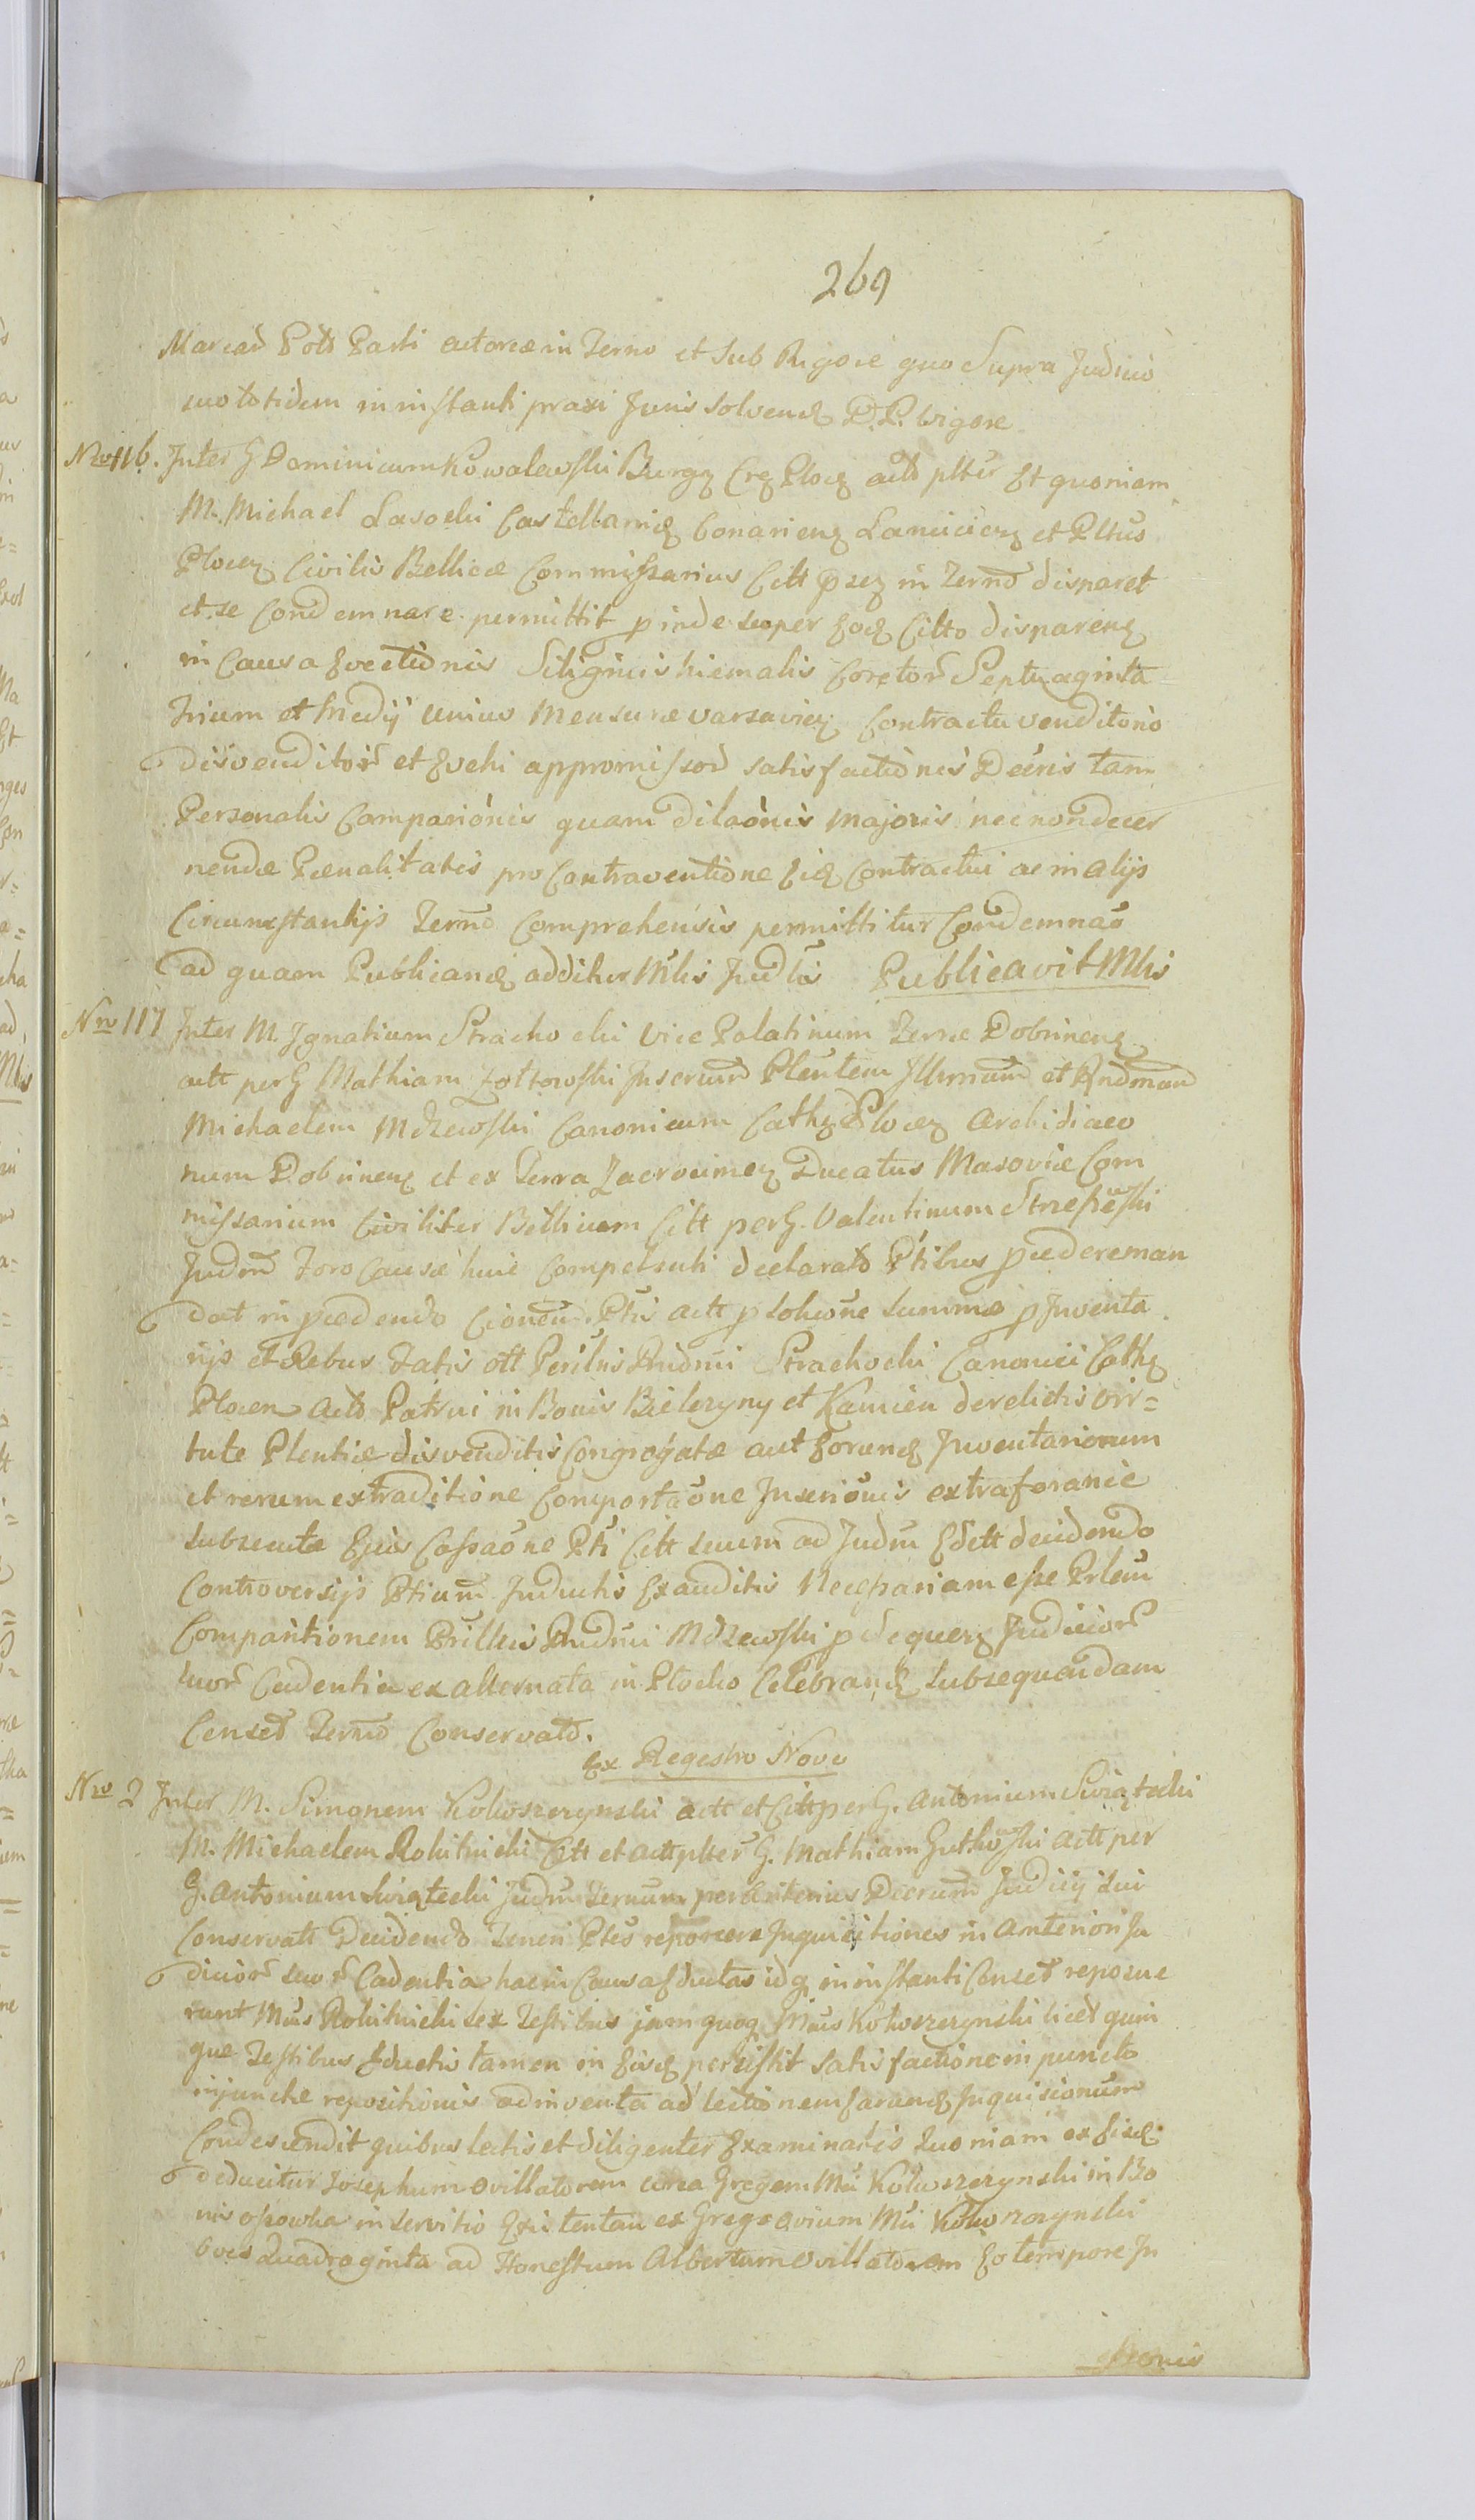 269
Marcarũ Potõ Parti actoreæ in Termo et sub Rigore quo Supra Judicio
suo totidem in instanti praxi Juris solvend D. P. Vigore
Nro 116. Inter G Dominicum Kowalewski Burg Crz Plocz actõ plter Et quoniam
M. Michael Lasocki Castellaniđ Conarienz Lanciciez et Pltus
Plocez Civilis Bellicæ Commissarius Citt psez in Termõ disparet
et se Condemnare permittit pinde super hoc Citto dispareng
in Causa Evectionis Siliginis hiemalis Coretor Septuaginta
Trium et Medij unius Mensuræ varsaviez Contractu venditorio
disvenditor et Evehi appromissor satisfactionis Decris tam
Personalis Comparionis quam dilaonis majoris nec non decer
nendæ Pænalitatis pro Contraventione Ei Contractui ac in alijs
Circumstantijs Termõ Comprehensis permittitur Condemnao
ad quam Publicand additur Mlis Judlis Publicavit Mlis
Nro 117 Inter M. Ignatium Strachocki Vice Palatinum Terræ Dobrinenz
actt per G Mathiam Zottowski Inserium Plentem Illmum et Rndmum
Michaelem Mdzewski Canonicum Cathz Plocez Archidiaco
num Dobrinenz et ex Terra Zacroimez Ducatus Masoviæ Com
missarium Civiliter Bellicum Citt per G. Valentinum Strzeszewski
Judm Foro Causæ huic Competenti declarato Ptibus pcedere man
dat in pcedendo Cionem Pti actt p solutione summæ p Inventa
rijs et Rebus Fatis ott Perillris Rndmi Strachocki Canonici Cathz
Plocen actõ Patrui in Bonis Bielczyny et Kamien derelictis vir=
tute Plentiæ disvenditis Congregatæ aut Eorund Inventariorum
et rerum extraditione Comportaone Inserionis extraforanie
subsecutæ Ejus Cassaone Pti Citt suum ad Judm Edett decidendo
Controversijs Ptium Inductis Exauditis Necessariam esse Prlem
Comparitionem Prillris Rndmi Mdzewski p sequenz Judicior
suor Cadentia ex alternata in Plocko Celebrand subsequendam
Censet Termo Conservato.
Ex Regestro Novo
Nro 2 Inter M. Simonem Kokoszczynski actt et Citt per G. Antonium Swiątecki
M. Michaelem Rokitnicki Citt et actt plter G. Mathiam Gutkowski actt per
G. Antonium Swiątecki Judm Termum per Anterius Decrum Judicij sui
Conservatt Decidendo Teneri Ptes reponere Inquisitiones in Anteriori Ju
dicior suor Cadentia hac in Causa Eductas idq in instanti Censet reposue
runt Mus Rokitnicki sex Testibus jam quoq Mus Kokoszczynski licet quin
que Testibus Eductis tamen in Eisd persistit satisfactione in puncto
injunctæ repositionis adinventa ad lectionem Earund Inquisionum
Condescendit quibus lectis et diligenter Examinatis Quoniam ex Eisd
deducitur Josephum Ovillatorem circa Gregem Mci Kokoszczynski in Bo
nis Opowka in servitio Existentem ex Grege Ovium Mci Kokoszczynski
Oves Quadraginta ad Honestum Albertum Ovillatorem Eo tempore In